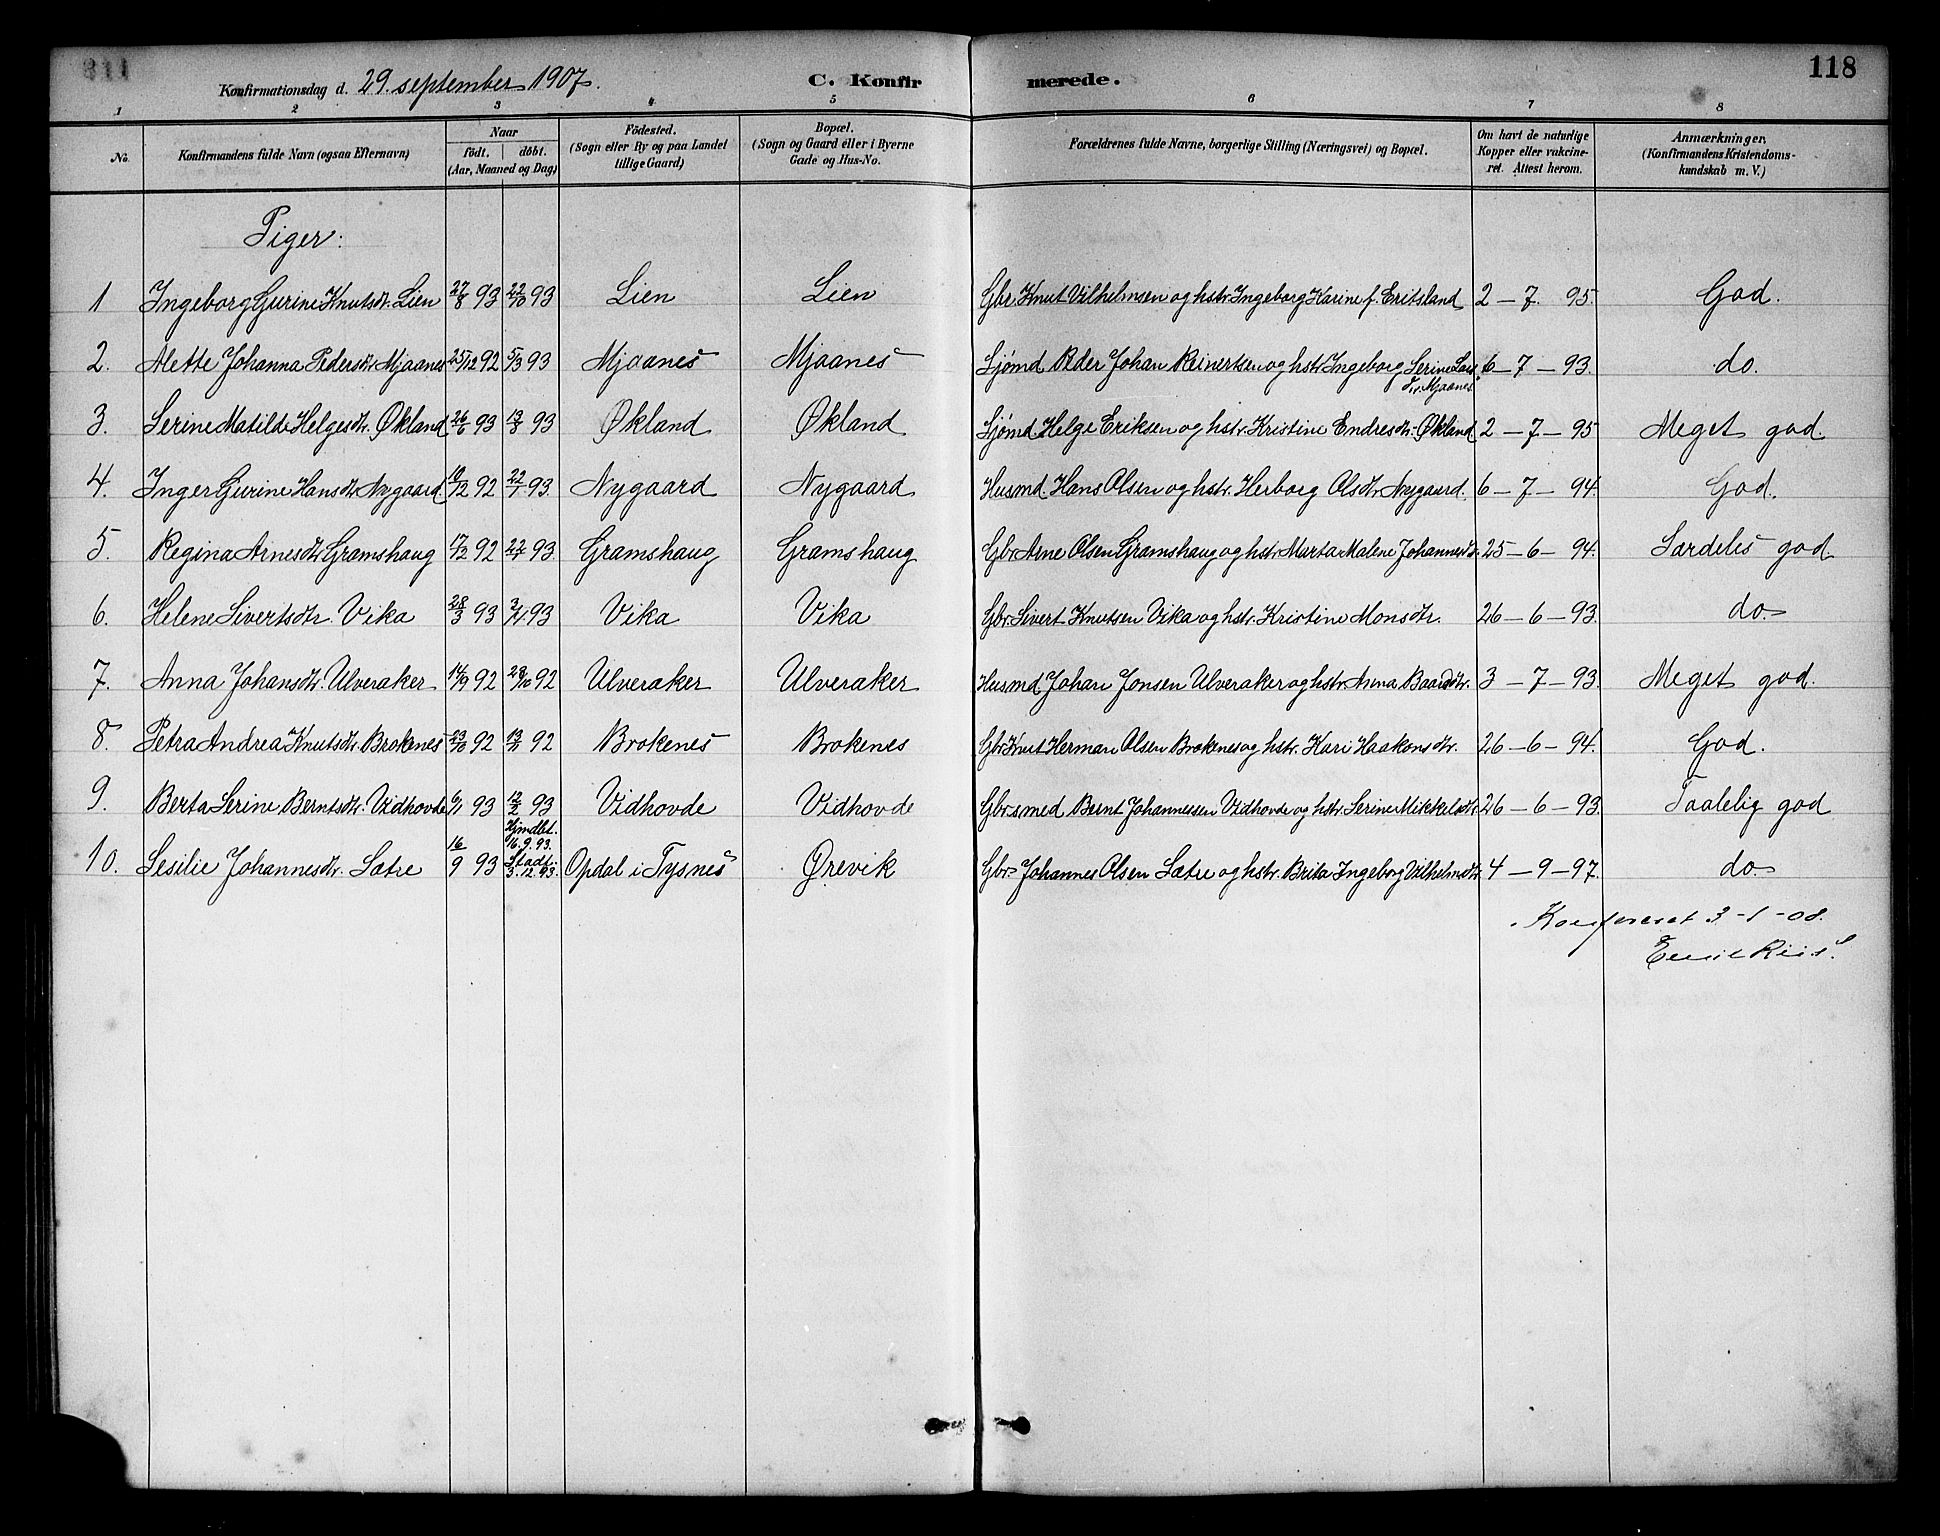 118
Konfirmationsdag d. 29. september 1907.
C. Konfirmerede.
1 2 3 4 5 6 7 8
No.
Konfirmandens fulde Navn (ogsaa Efternavn)
Naar
födt. döbt.
(Aar, Maaned og Dag)
Födested.
(Sogn eller By og paa Landet
tillige Gaard)
Bopæl.
(Sogn og Gaard eller i Byerne
Gade og Hus-No.
Forældrenes fulde Navne, borgerlige Stilling (Næringsvei) og Bopæl.
Om havt de naturlige
Kopper eller vakcine-
ret. Attest herom.
Anmærkninger,
(Konfirmandens Kristendoms-
kundskab m. V.)
Piger:
1 Ingeborg Gurine Knutsdtr. Lien 27/8 93 22/10 93 Lien Lien Gbr. Knut Vilhelmsen og hstr. Ingeborg Karine f. Eritsland 2 – 7. 95 God.
2. Alette Johanna Pedersdtr. Mjaanes 25/12 92 5/3 93 Mjaanes Mjaanes Sjømd Peder Johan Reinertsen og hstr. Ingeborg Serine Lars
dtr. Mjaanes 6 – 7 – 93. do.
3. Serine Matilde Helgesdtr. Økland 26/6 93 13/8 93 Økland Økland Sjømd Helge Eriksen og hstr. Kristine Endresdtr. Økland 2 – 7 – 95 Meget god.
4. Inger Gurine Hansdtr. Nygaard 10/12 92 22/1 93 Nygaard Nygaard Husmd Hans Olsen og hstr. Herborg Olsdtr. Nygaard. 6 – 7 – 94. God.
5. Regina Arnesdtr. Gramshaug 17/12 92 22/1 93 Gramshaug Gramshaug Gbr. Arne Olsen Gramshaug og hstr. Marta Malene Johannesdtr. 25 – 6 – 94. Særdeles god
6. Helene Sivertsdtr. Vika 28/3 93 3/4 93 Vika Vika Gbr. Sivert Knutsen Vika og hstr. Kristine Monsdtr. 26 – 6 – 93. do.
7. Anna Johansdtr. Ulveraker 14/9 92 23/10 92 Ulveraker Ulveraker Husmd Johan Jonsen Ulveraker og hstr. Anna Baardsdtr. 3 – 7 – 93. Meget god.
8. Petra Andrea Knutsdtr. Brokenes 23/10 92 13/11 92 Brokenes Brokenes Gbr. Knut Herman Olsen Brokenes og hstr. Kari Haakonsdtr. 26 – 6 – 94. God.
9. Berta Serine Berntsdtr. Vidhovde 6/1 93 12/2 93 Vidhovde Vidhovde Gbr. smed Bernt Johannessen Vidhovde og hstr. Serine Mikkelsdtr. 26 – 6 – 93. Taalelig god
10. Sesilie Johannesdtr. Sætre 16/9 93 Hjmdbt. 16.9.93. Stadf: 3.12.93. Opdal i Tysnes Ørevik Gbr. Johannes Olsen Sætre og hstr. Brita Ingeborg Vilhelmsdtr. 4 – 9 – 97. do.
Konfereret 3 – 1 – 08.
Emil Riis.